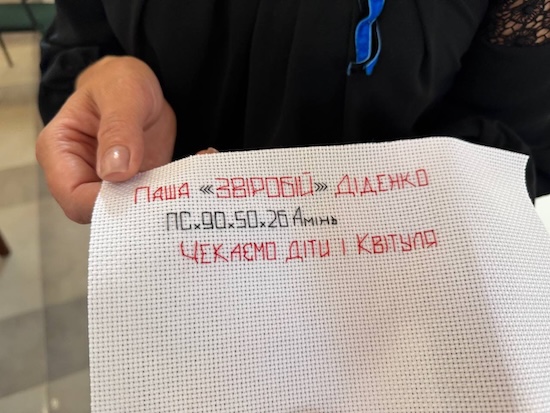 Паша «ЗВІРОБІЙ» Діденко
ПСх90.50х26 Амінь
Чекаємо діти і Квітуля